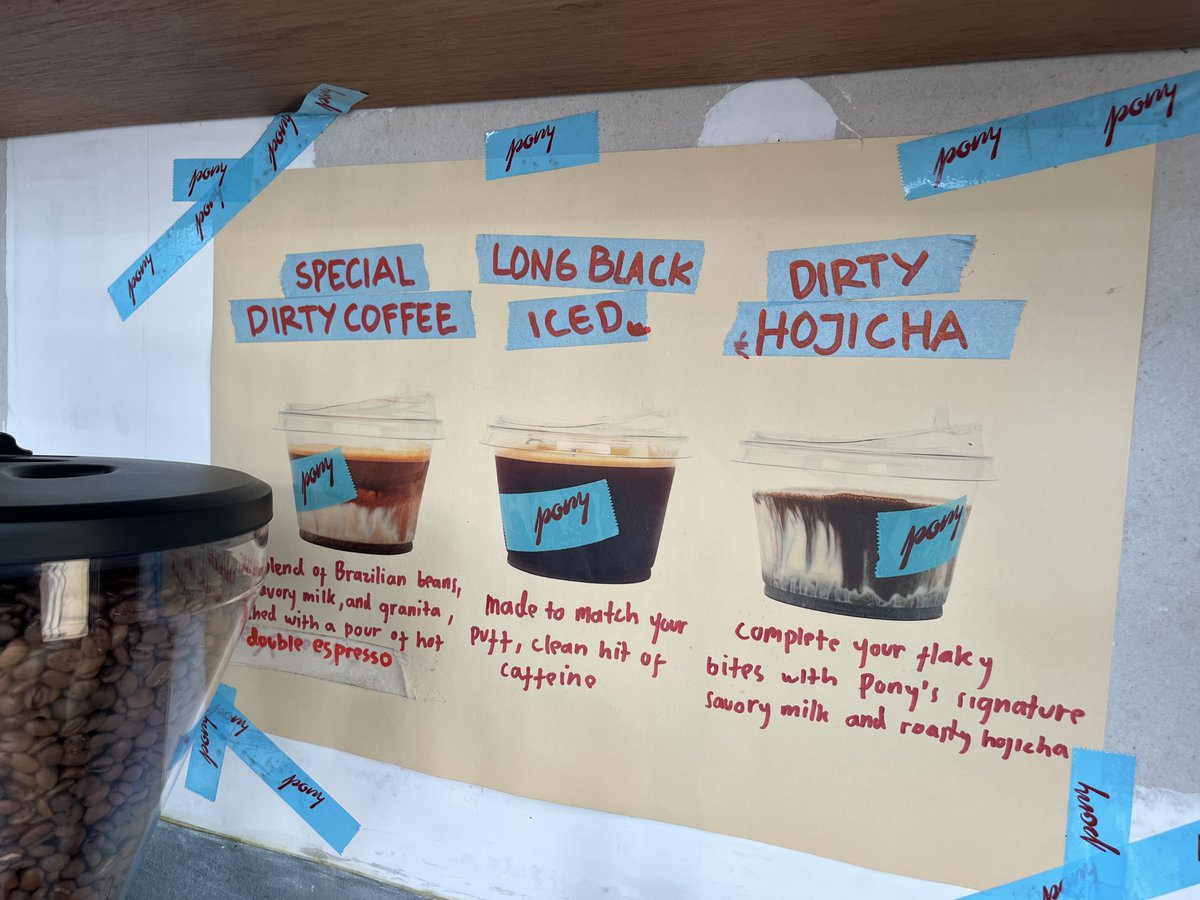 pony
pony
pony
pony
pony
pony
pony
pony
pony
SPECIAL
DIRTY COFFEE
LONG BLACK
ICED
DIRTY
HOJICHA
pony
pony
pony
blend of Brazilian beans,
savory milk, and granita,
with a pour of hot
double espresso
made to match your
puff, clean hit of
caffeine
complete your flaky
bites with Pony's signature
savory milk and roasty hojicha
pony
pony
pony
pony
pony